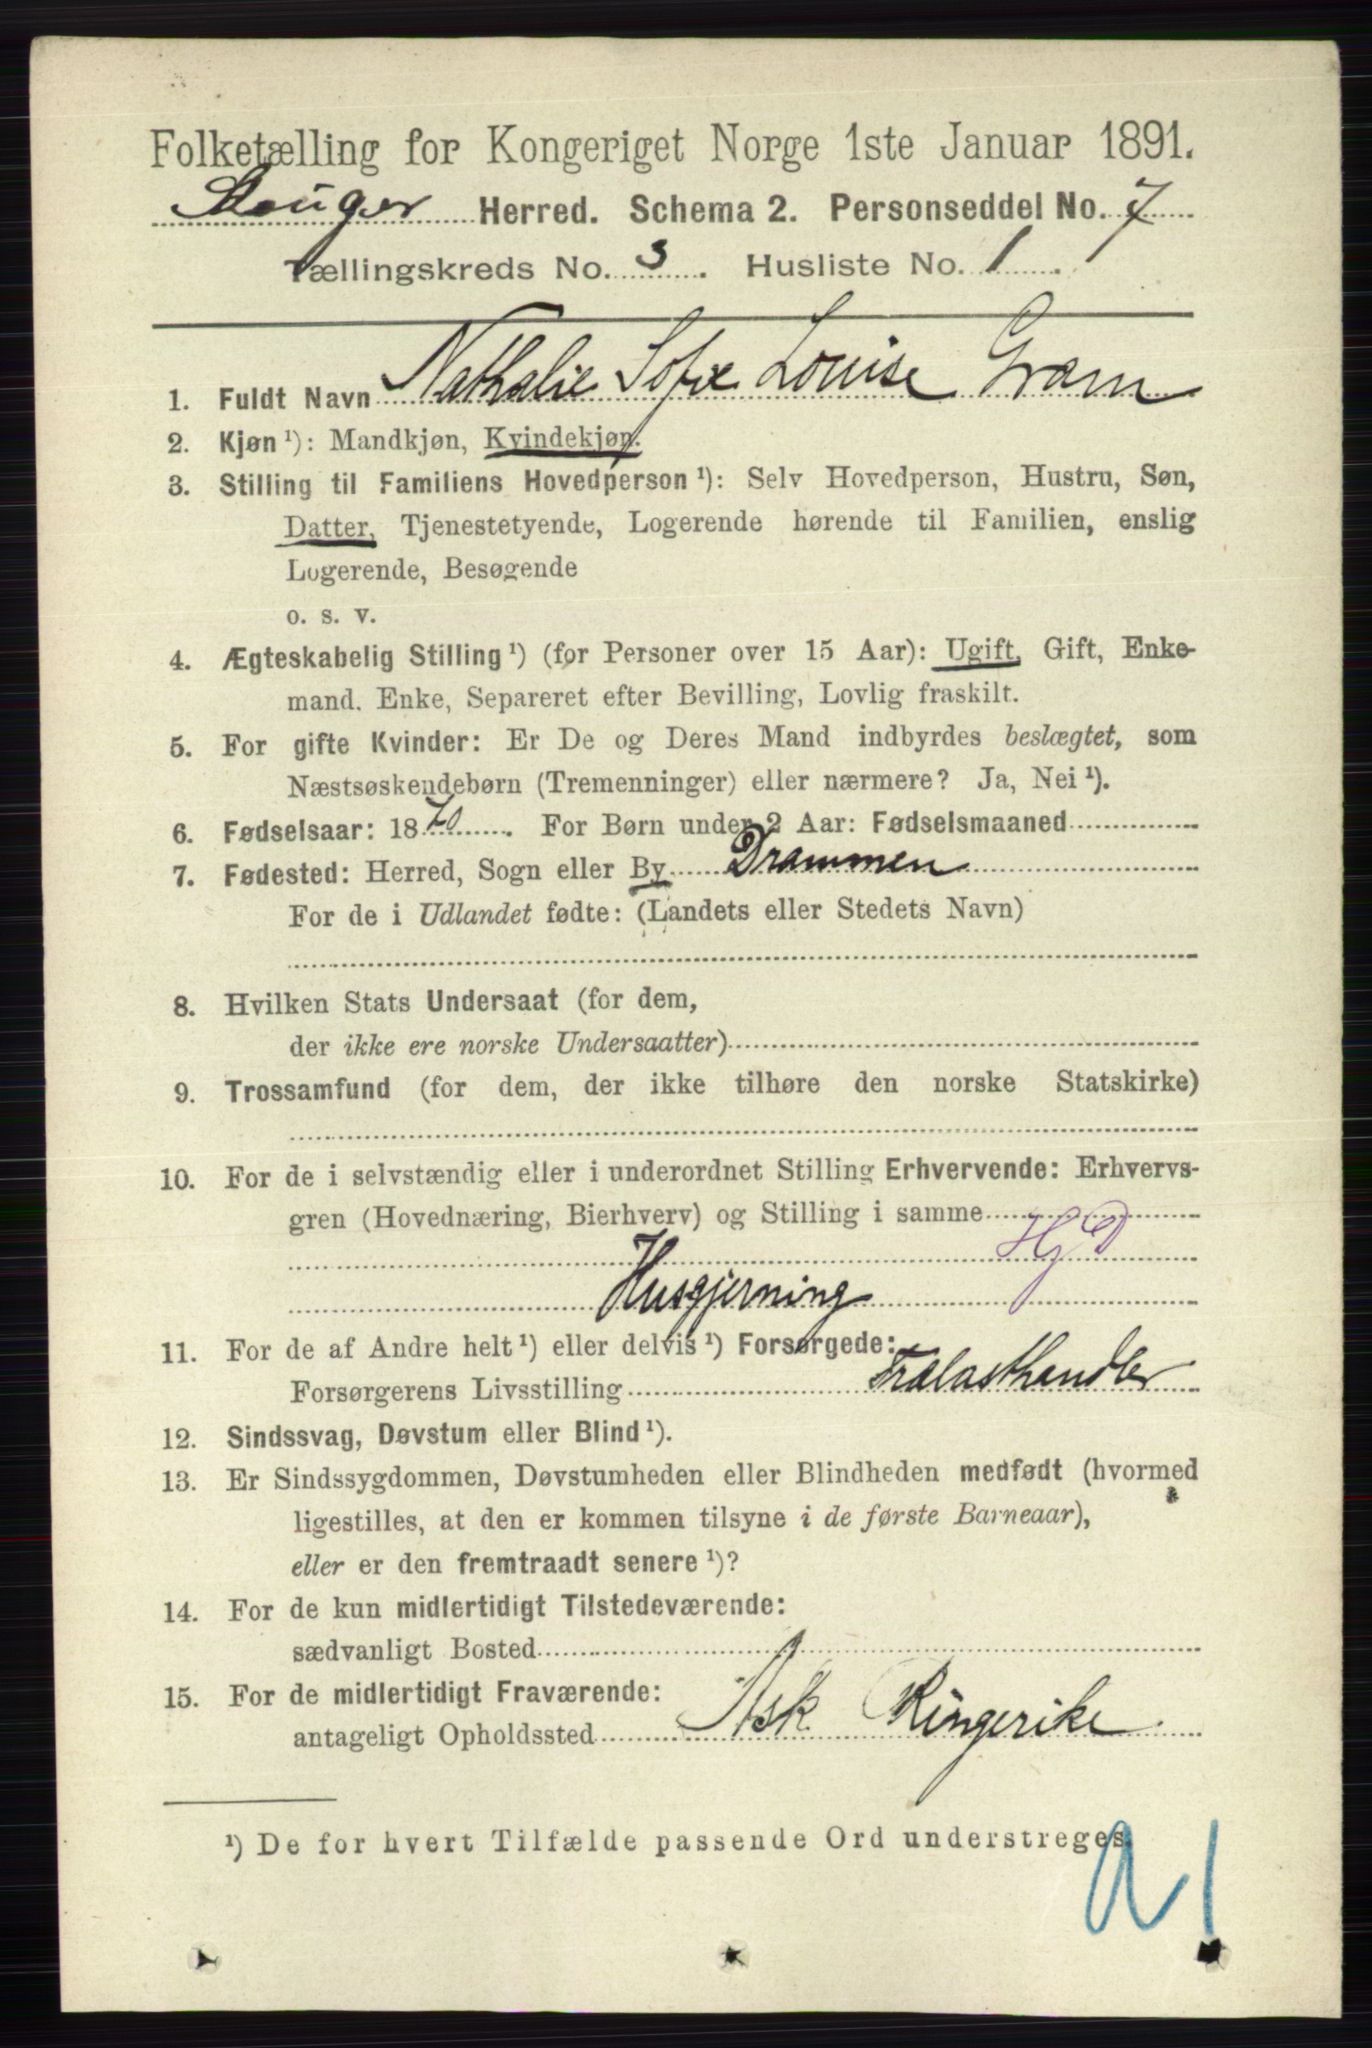 Folketælling for Kongeriget Norge 1ste Januar 1891.
Skouger Herred. Schema 2. Personseddel No. 7
Tællingskreds No. 3. Husliste No. 1.
1. Fuldt Navn Nathalie Sofie Louise Gram
2. Kjøn ¹): Mandkjøn, Kvindekjøn.
3. Stilling til Familiens Hovedperson ¹): Selv Hovedperson, Hustru, Søn,
Datter, Tjenestetyende, Logerende hørende til Familien, enslig
Logerende, Besøgende
o. s. v.
4. Ægteskabelig Stilling ¹) (for Personer over 15 Aar): Ugift, Gift, Enke-
mand, Enke, Separeret efter Bevilling, Lovlig fraskilt.
5. For gifte Kvinder: Er De og Deres Mand indbyrdes beslægtet, som
Næstsøskendebørn (Tremenninger) eller nærmere? Ja, Nei ¹).
6. Fødselsaar: 1870. For Børn under 2 Aar: Fødselsmaaned
7. Fødested: Herred, Sogn eller By Drammen
For de i Udlandet fødte: (Landets eller Stedets Navn)
8. Hvilken Stats Undersaat (for dem,
der ikke ere norske Undersaatter)
9. Trossamfund (for dem, der ikke tilhøre den norske Statskirke)
10. For de i selvstændig eller i underordnet Stilling Erhvervende: Erhvervs-
gren (Hovednæring, Bierhverv) og Stilling i samme
HjD
Husgjerning
11. For de af Andre helt ¹) eller delvis ¹) Forsørgede:
Forsørgerens Livsstilling Trælasthandler
12. Sindssvag, Døvstum eller Blind ¹).
13. Er Sindssygdommen, Døvstumheden eller Blindheden medfødt (hvormed
ligestilles, at den er kommen tilsyne i de første Barneaar),
eller er den fremtraadt senere ¹)?
14. For de kun midlertidigt Tilstedeværende:
sædvanligt Bosted
15. For de midlertidigt Fraværende:
antageligt Opholdssted Ask Ringerike
¹) De for hvert Tilfælde passende Ord understreges.